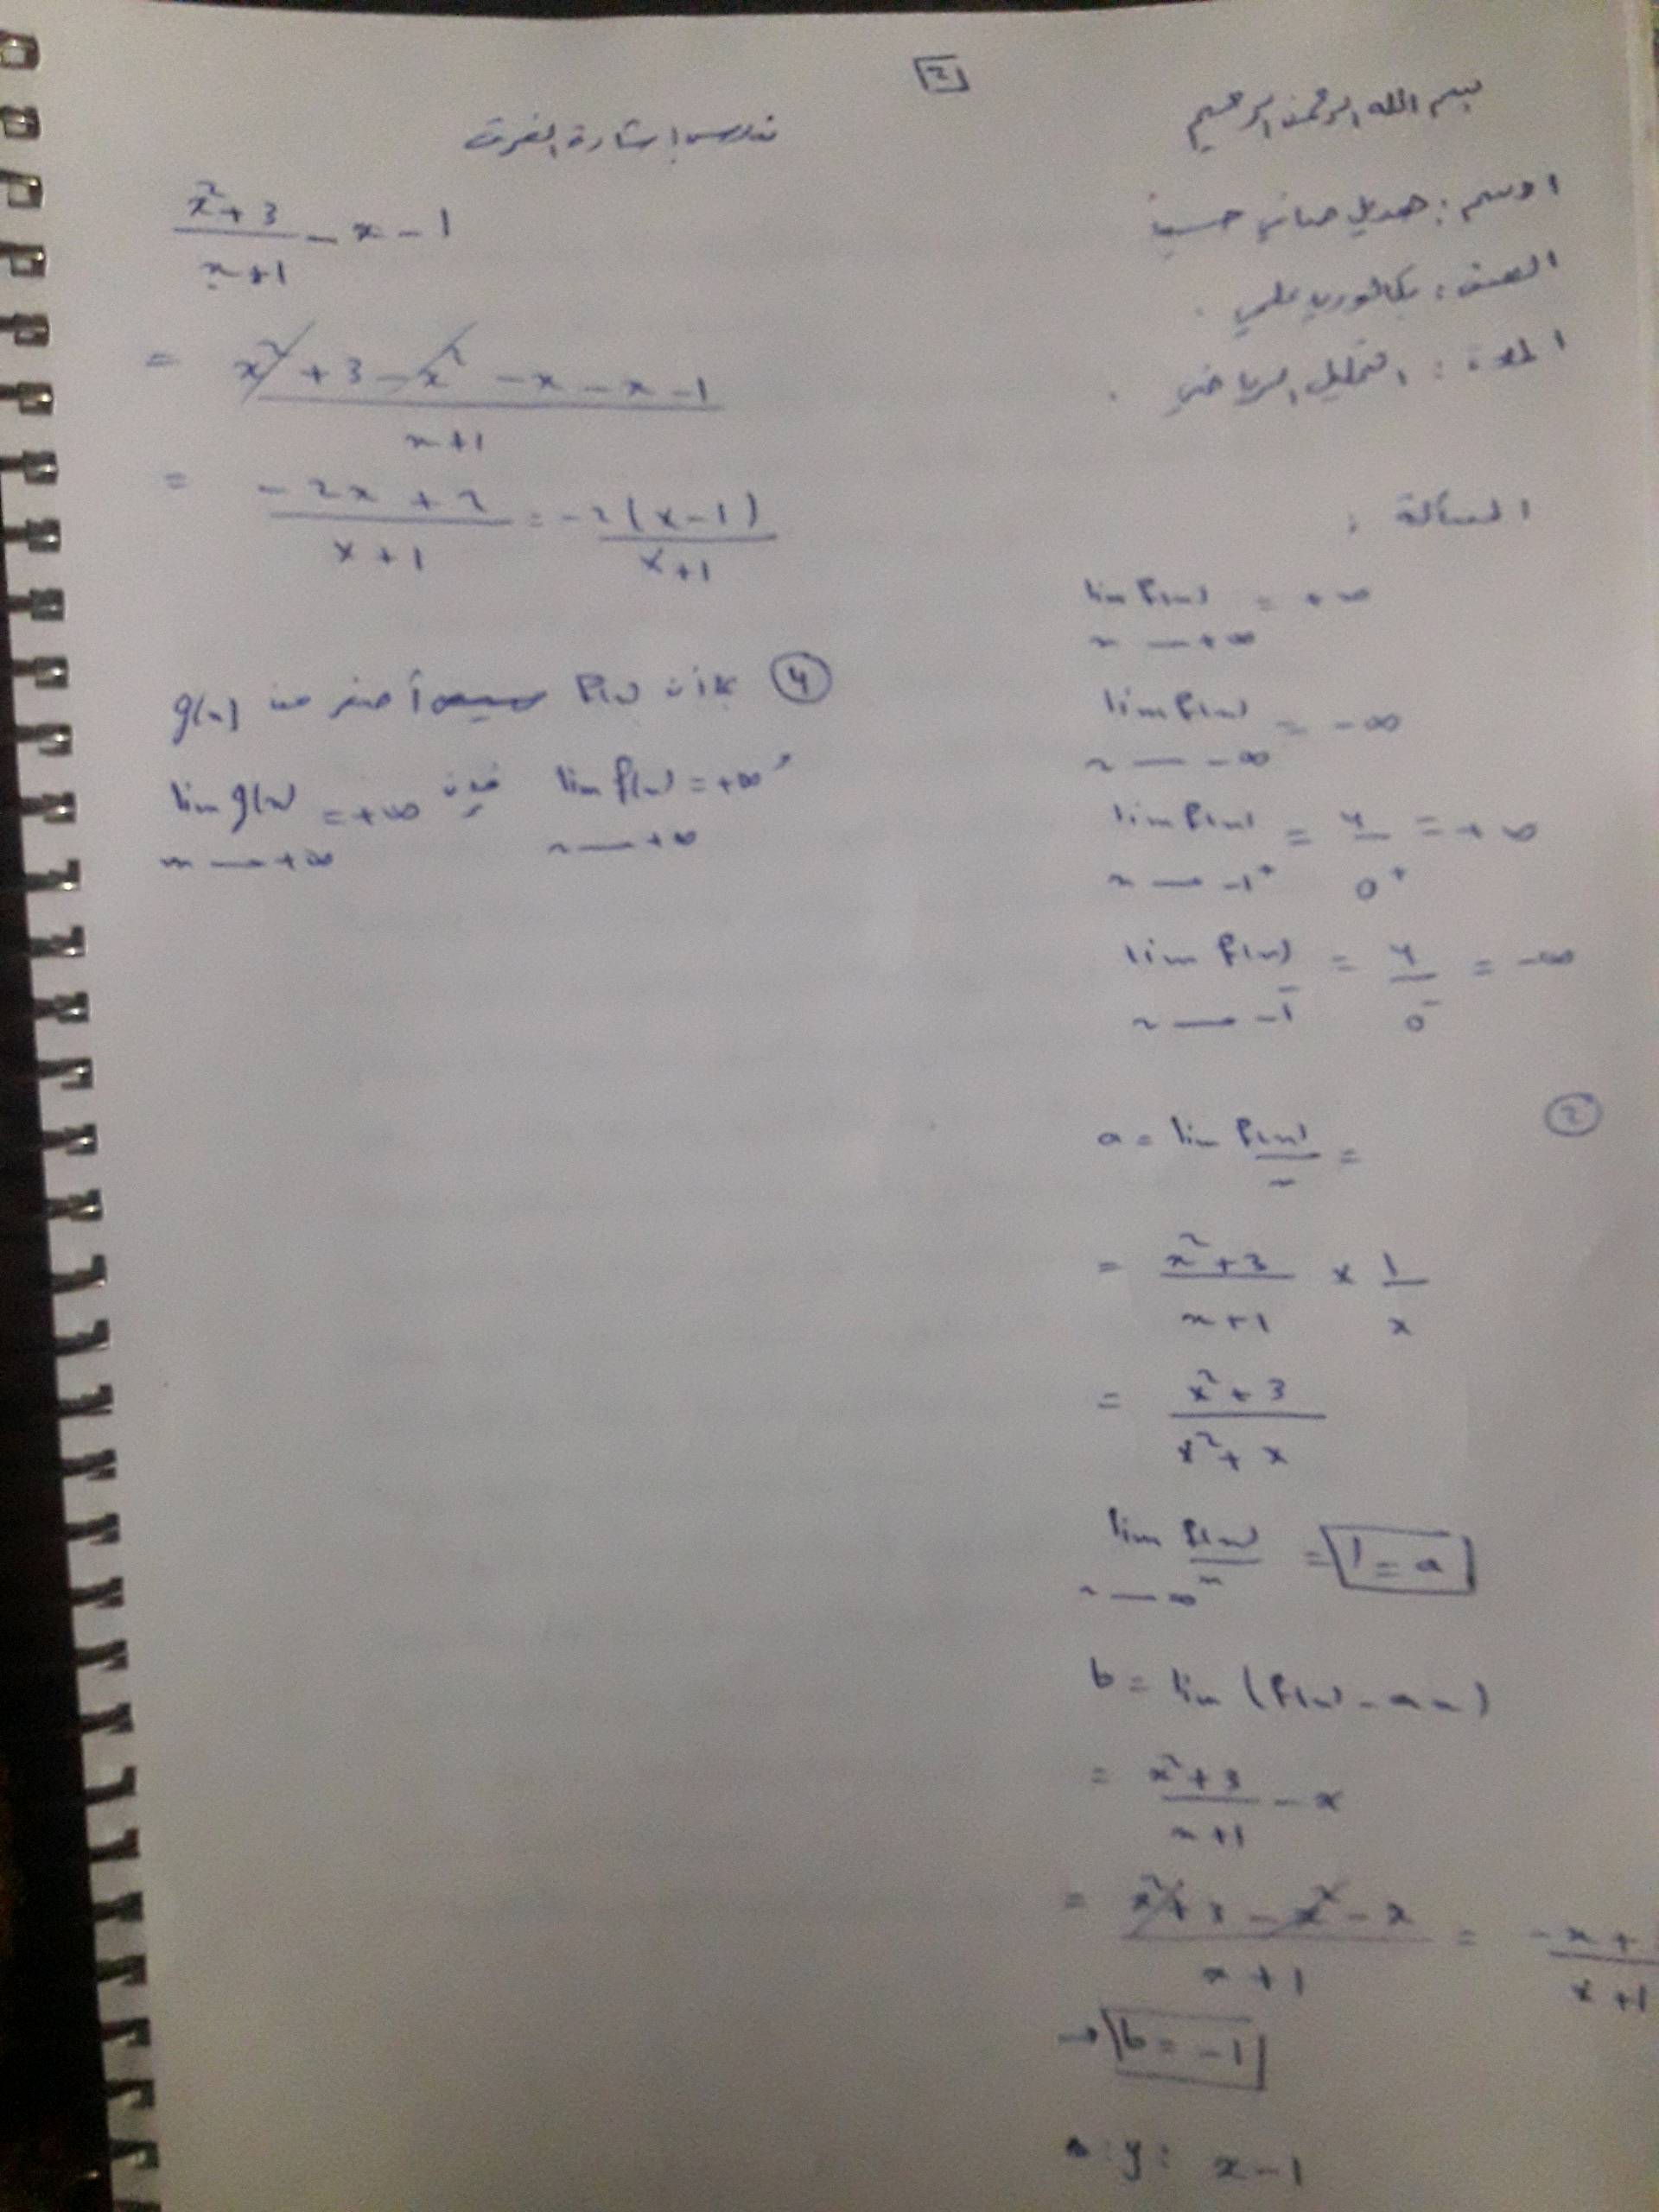 [2]
بسم الله الرحمن الرحيم
الاسم : هديل حسين
الصف : بكالوريا علمي .
المادة : التحليل الرياضي .
المسألة :
lim f(x) = +∞
x → +∞
lim f(x) = -∞
x → -∞
lim f(x) = 4/0⁺ = +∞
x → -1⁺
lim f(x) = 4/0⁻ = -∞
x → -1⁻
②
a = lim f(x)/x =
= (x²+3)/(x+1) × 1/x
= (x²+3)/(x²+x)
lim f(x)/x = 1 = a
x → ∞
b = lim (f(x) - ax)
= (x²+3)/(x+1) - x
= (x²+3-x²-x)/(x+1) = (-x+)/(x+1)
→ b = -1
Δ: y: x-1
ندرس إشارة الفرق
(x²+3)/(x+1) - x - 1
= (x²+3-x²-x-x-1)/(x+1)
= (-2x+2)/(x+1) = -2(x-1)/(x+1)
④ f(x) أصغر من g(x)
lim f(x) = +∞ فإن lim g(x) = +∞
x → +∞ x → +∞